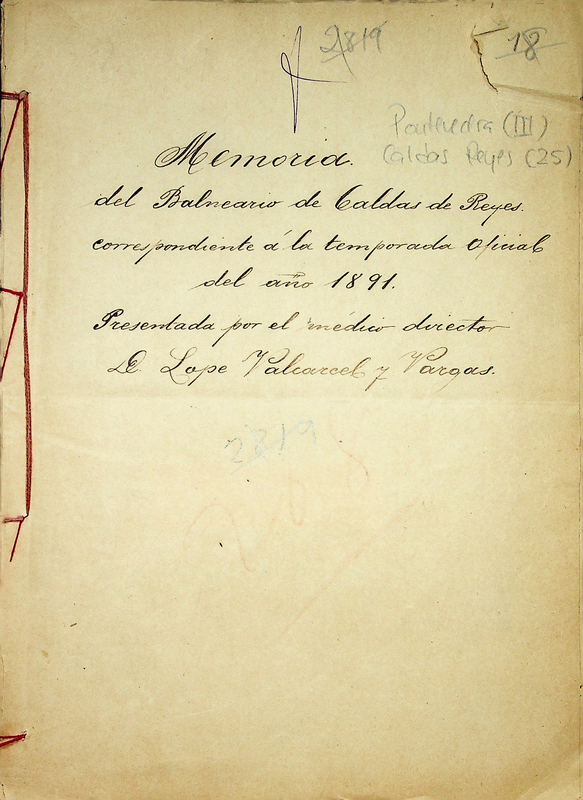 2819
18
Pontevedra (III)
Caldas Reyes (25)
Memoria.
del Balneario de Caldas de Reyes.
correspondiente á la temporada oficial
del año 1891.
Presentada por el médico director
D. Lope Valcarcel y Vargas.
2819